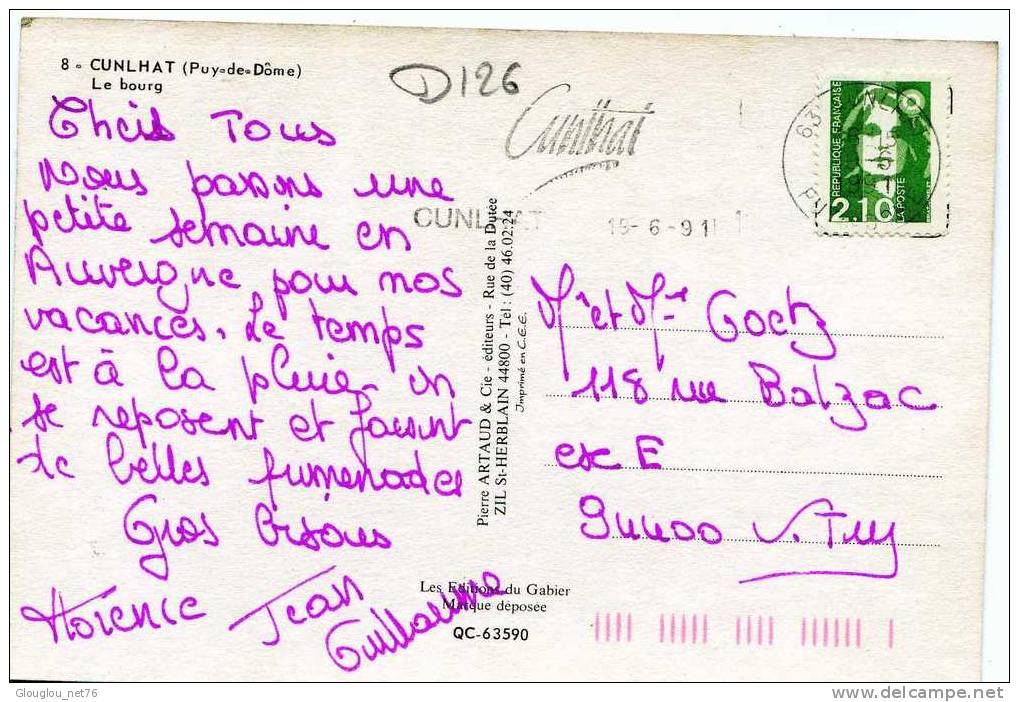 8 - CUNLHAT (Puy-de-Dôme)
Le bourg
D126
Cunlhat
CUNLHAT
19-6-91
RÉPUBLIQUE FRANÇAISE
2.10
LA POSTE
Chers Tous
Nous passons une
petite semaine en
Auvergne pour nos
vacances. Le temps
est à la pluie on
se reposent et faisant
de belles fumenades
Gros bisous
Florence Jean
Guillaume
Pierre ARTAUD & Cie - éditeurs - Rue de la Dutée
ZIL St-HERBLAIN 44800 - Tel : (40) 46.02.24
Imprimé en C.E.E.
Mr et Mme Goetz
118 rue Balzac
esc E
94400 Vitry
Les Editions du Gabier
Marque déposée
QC-63590
Glouglou_net76
www.delcampe.net